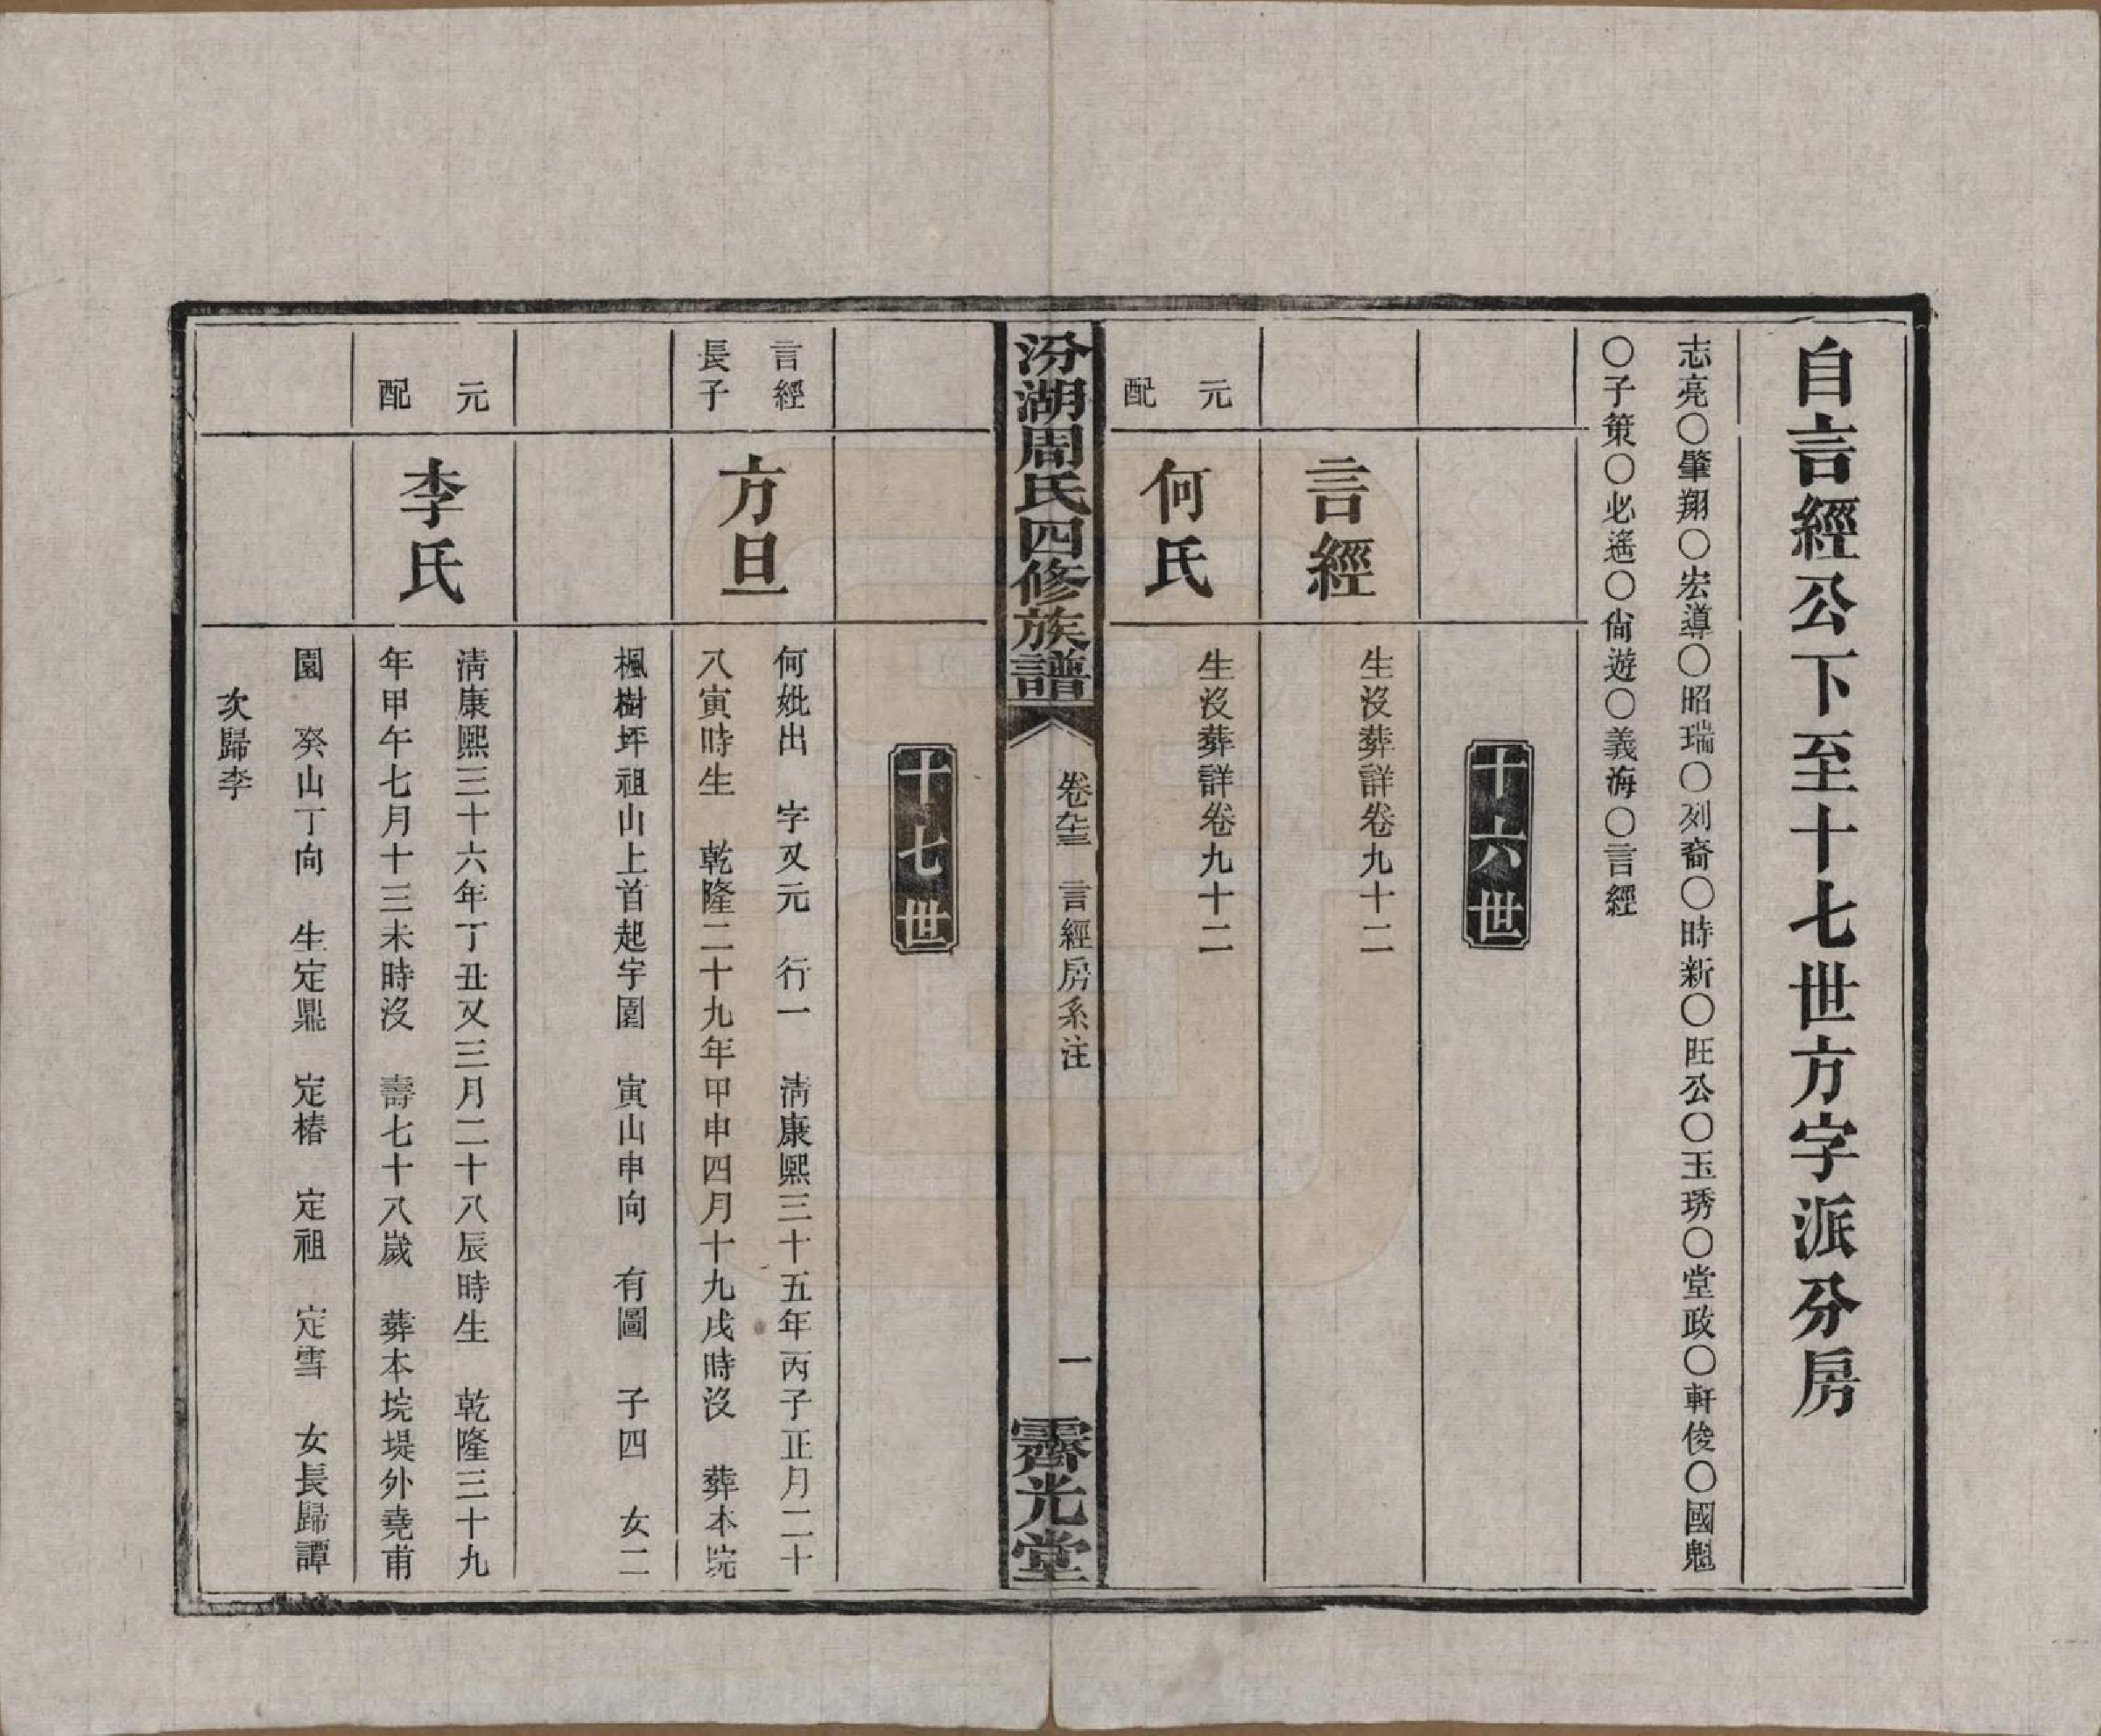 自言經公下至十七世方字派分房
志亮〇肇翔〇宏導〇昭瑞〇列裔〇時新〇旺公〇玉琇〇堂政〇軒俊〇國魁
〇子策〇必遙〇尙遊〇義海〇言經
十六世
言經
生沒葬詳卷九十二
元配
何氏
生沒葬詳卷九十二
汾湖周氏四修族譜
卷九十三
言經房系注
一
霽光堂
十七世
言經
長子
方旦
何妣出 字又元 行一 淸康熙三十五年丙子正月二十
八寅時生 乾隆二十九年甲申四月十九戌時沒 葬本垸
楓樹坪祖山上首起宇園 寅山申向 有圖 子四 女二
元配
李氏
淸康熙三十六年丁丑又三月二十八辰時生 乾隆三十九
年甲午七月十三未時沒 壽七十八歲 葬本垸堤外堯甫
園 癸山丁向 生定鼎 定椿 定祖 定雪 女長歸譚
次歸李